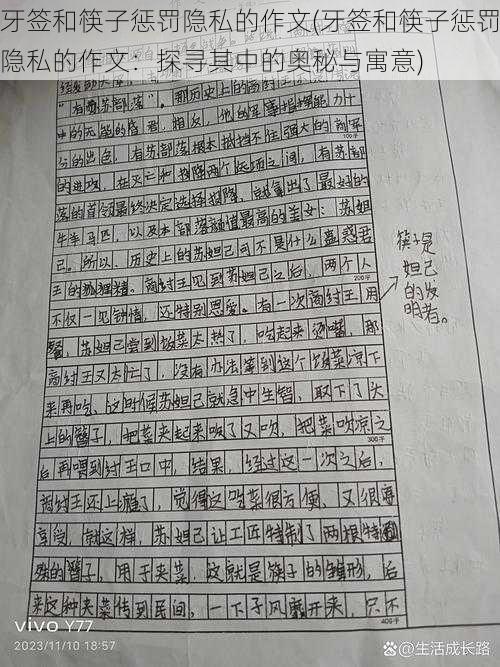 牙签和筷子惩罚隐私的作文(牙签和筷子惩罚
隐私的作文：探寻其中的奥秘与寓意)
"有苏部落"。那历史上的商纣王
中的无能的昏君，相反，他的军事指挥能力十
100字
分的出色，有苏部落根本抵挡不住强大的商军
的进攻，在灭亡和投降两个选项之间，有苏部
落的首领最终决定选择投降，就拿出了最好的
牛羊马匹，以及本部落颜值最高的美女：苏妲
己。所以，历史上的苏妲己可不是什么蛊惑君
王的狐狸精。商纣王见到苏妲己之后，两个人
200字
不仅一见钟情，还特别恩爱。有一次商纣王用
餐，苏妲己尝到饭菜太热了，吃起来烫嘴，那
商纣王又太忙了，没有办法等到这个饭菜凉下
来再吃，这时候苏妲己就急中生智，取下了头
上的簪子，把菜夹起来吹了又吹，把菜吹凉之
300字
后再喂到纣王口中，结果，经过这一次之后，
商纣王还上瘾了，觉得这吃菜很方便，又很享
享受，就这样，苏妲己让工匠特制了两根特
殊的簪子，用于夹菜，这就是筷子的雏形，后
来这种夹菜传到民间，一下子风靡开来，只不
400字
筷子是
妲己
的发
明者。
vivo Y77
2023/11/10 18:57
@生活成长路